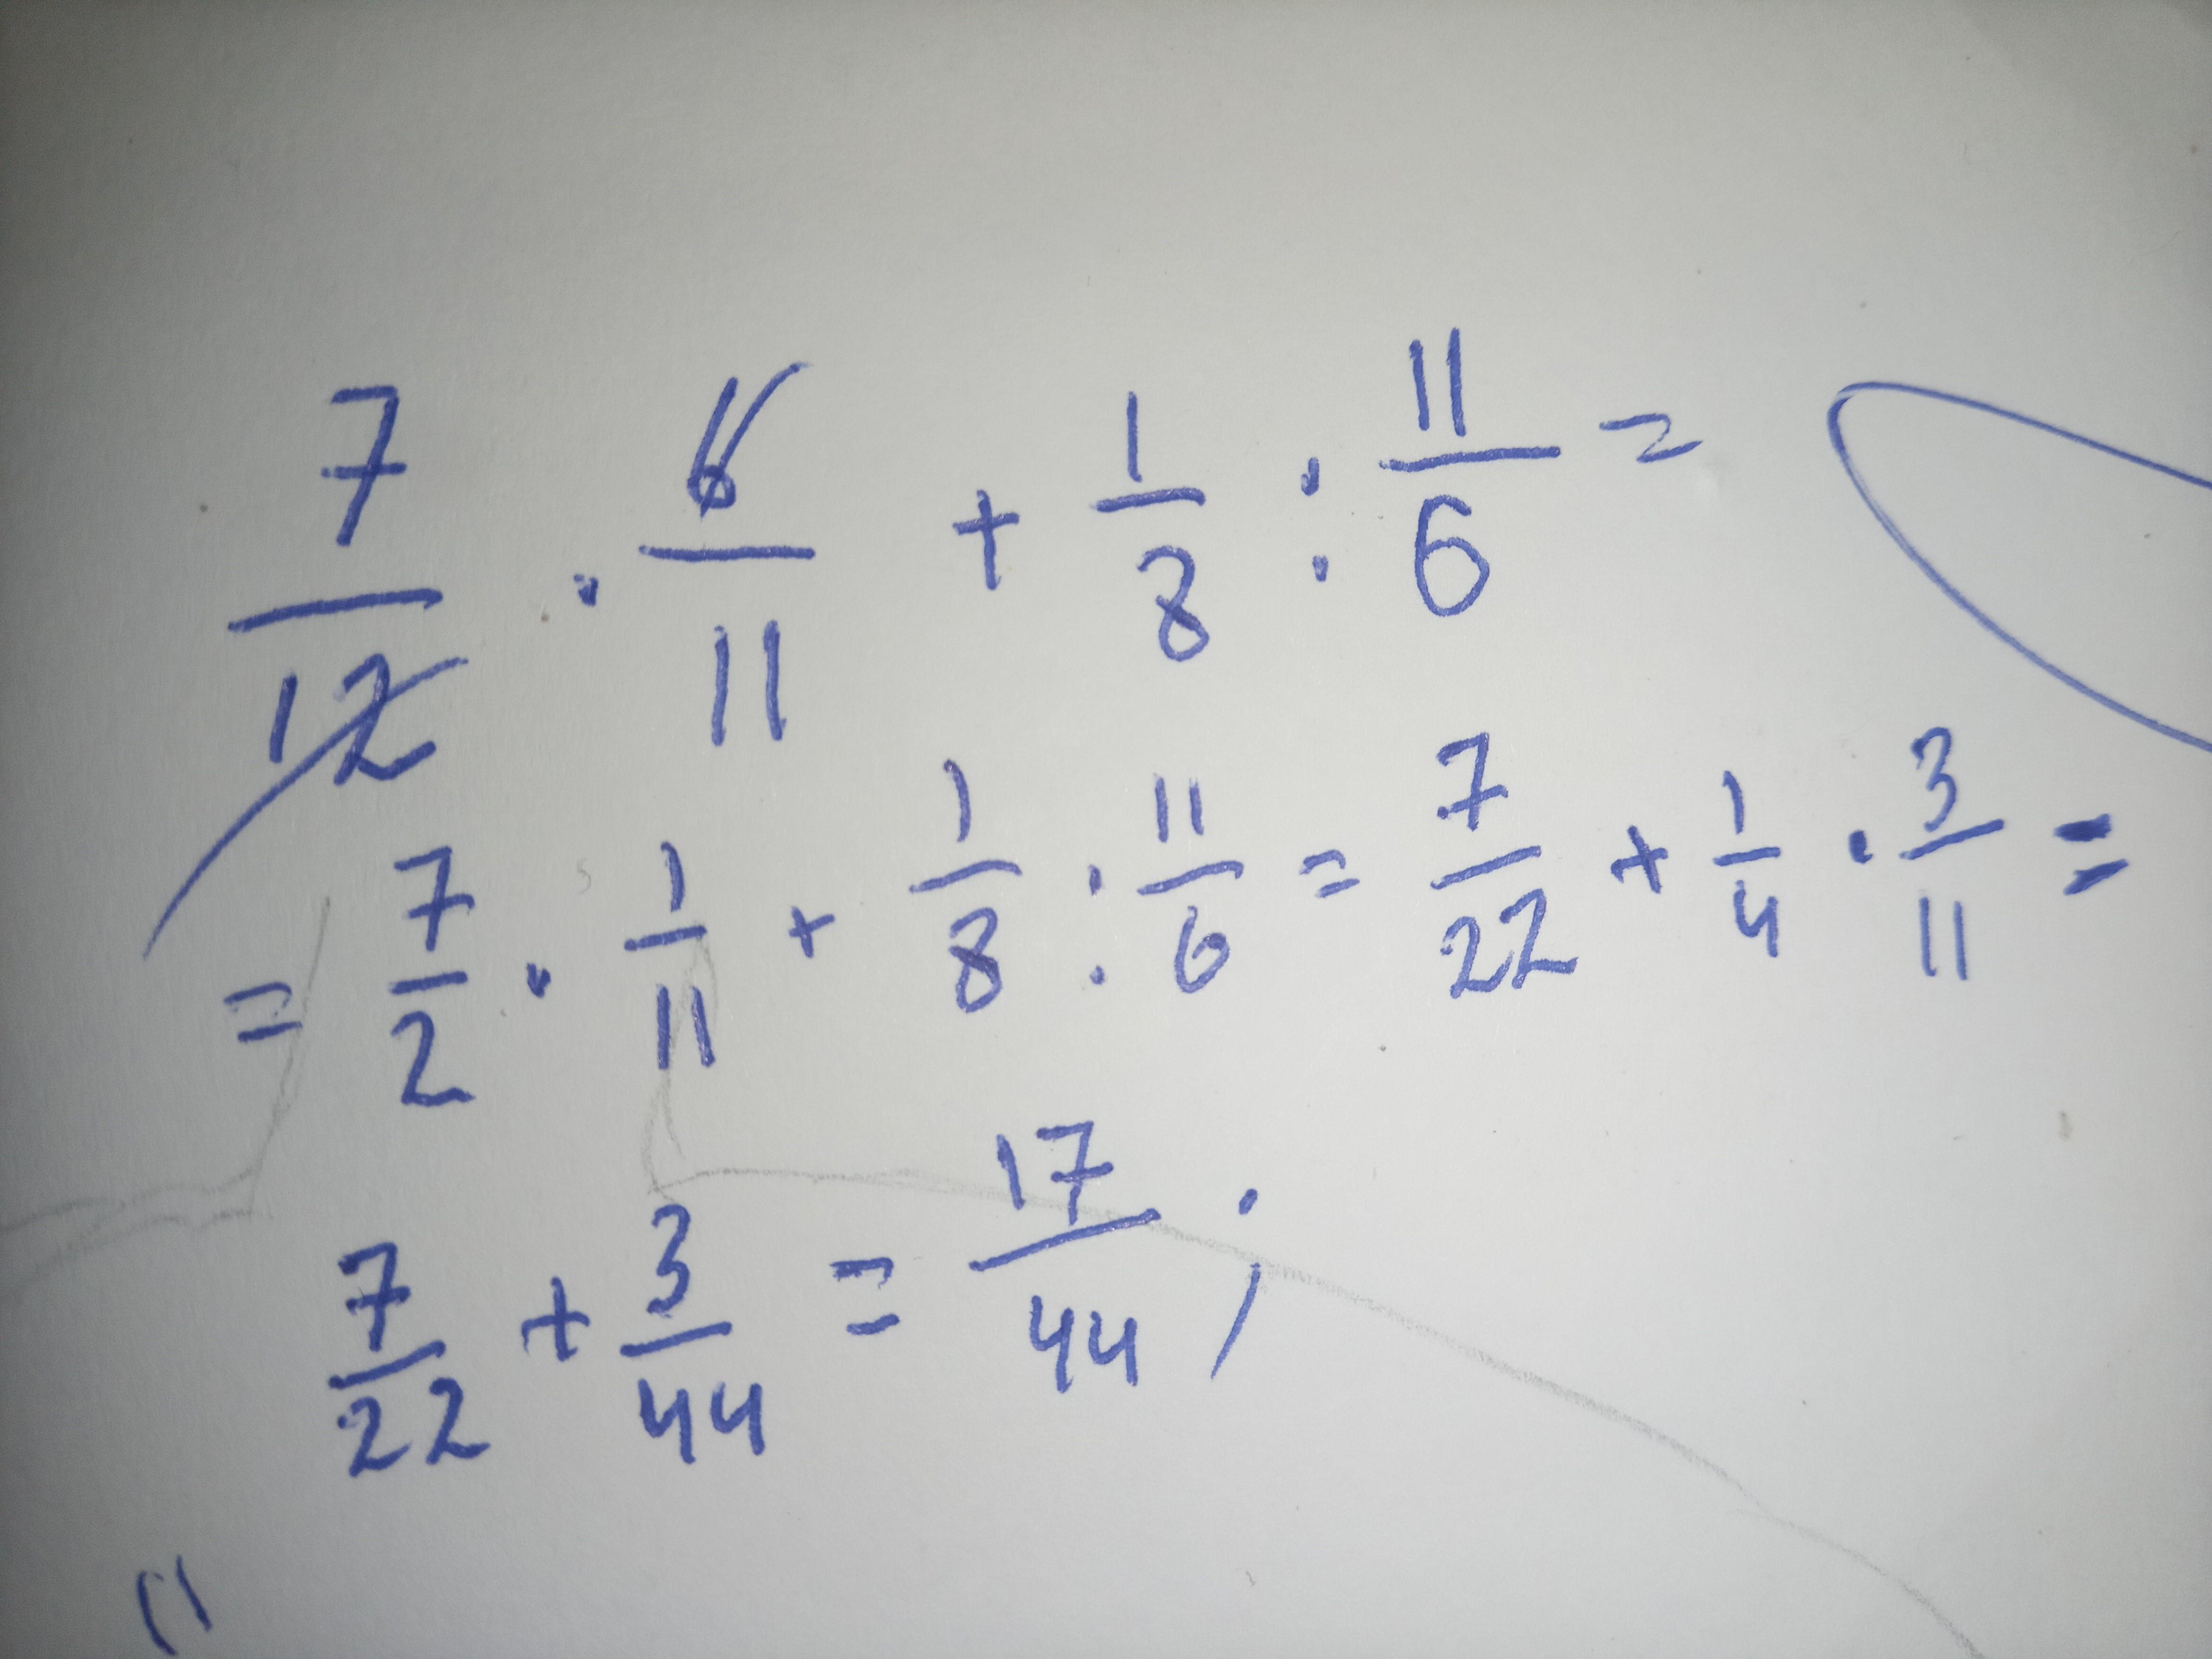 7/12 · 6/11 + 1/8 : 11/6 =
= 7/2 · 1/11 + 1/8 : 11/6 = 7/22 + 1/4 · 3/11 =
7/22 + 3/44 = 17/44 ;